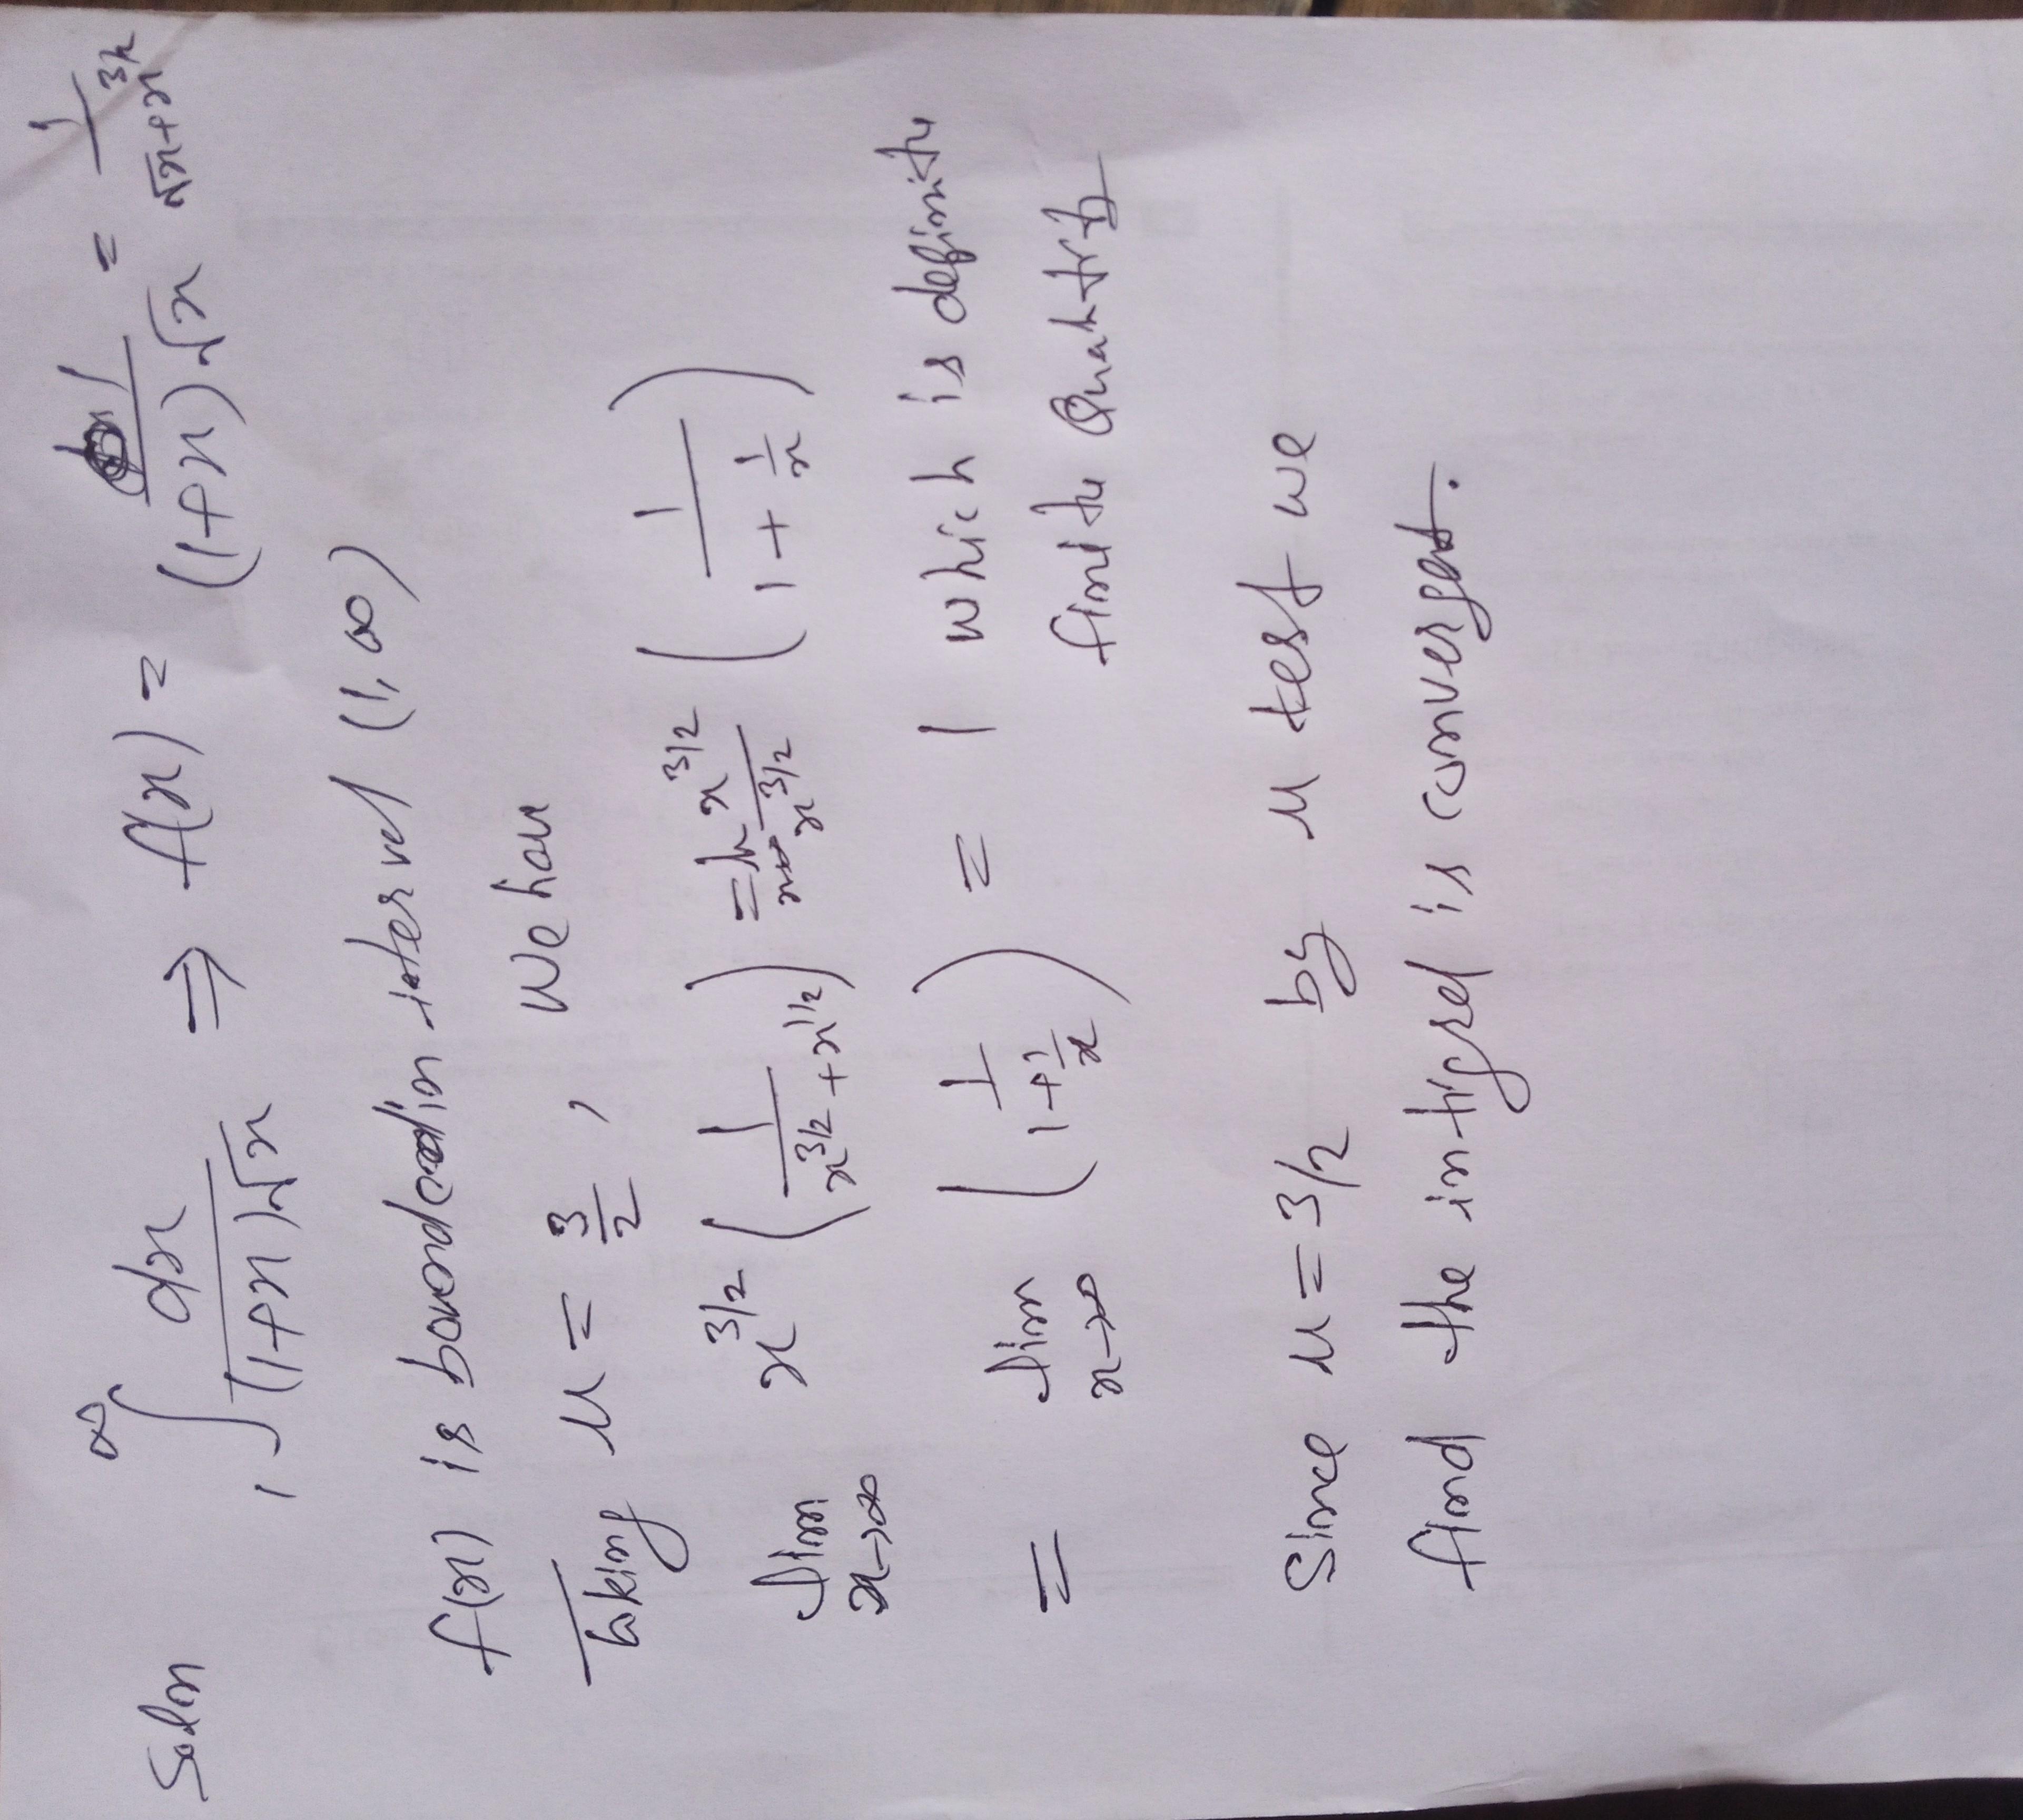 Soln ∫₁^∞ dx/((1+x)√x) ⇒ f(x) = 1/((1+x)√x) = 1/(√x+x^3/2)
f(x) is bounded in interval (1, ∞)
taking μ = 3/2 , We have
lim x→∞ x^3/2 (1/(x^3/2+x^1/2)) = lt x→∞ x^3/2/x^3/2 (1/(1+1/x))
= lim x→∞ (1/(1+1/x)) = 1 which is definite
finite Quantity
Since μ = 3/2 by μ test we
find the intigrel is convergent.